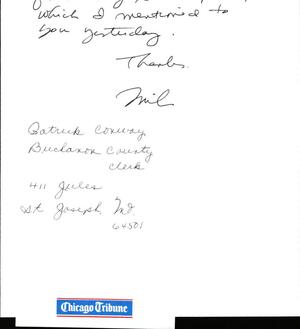 which I mentioned to
you yesterday.
Thanks.
Patrick Conway
Buchanan County
Clerk
411 Jules
St Joseph, Mo.
64501
Chicago Tribune